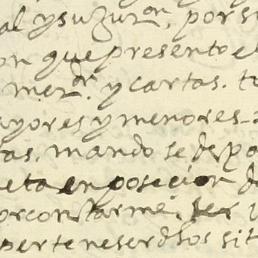 al y su zuron. por su
on que presento el
mezor. y cartas. t
ayores y menores
as. mando se despa
eta en posecion d
por constarme, ser
perteneserdsos sit